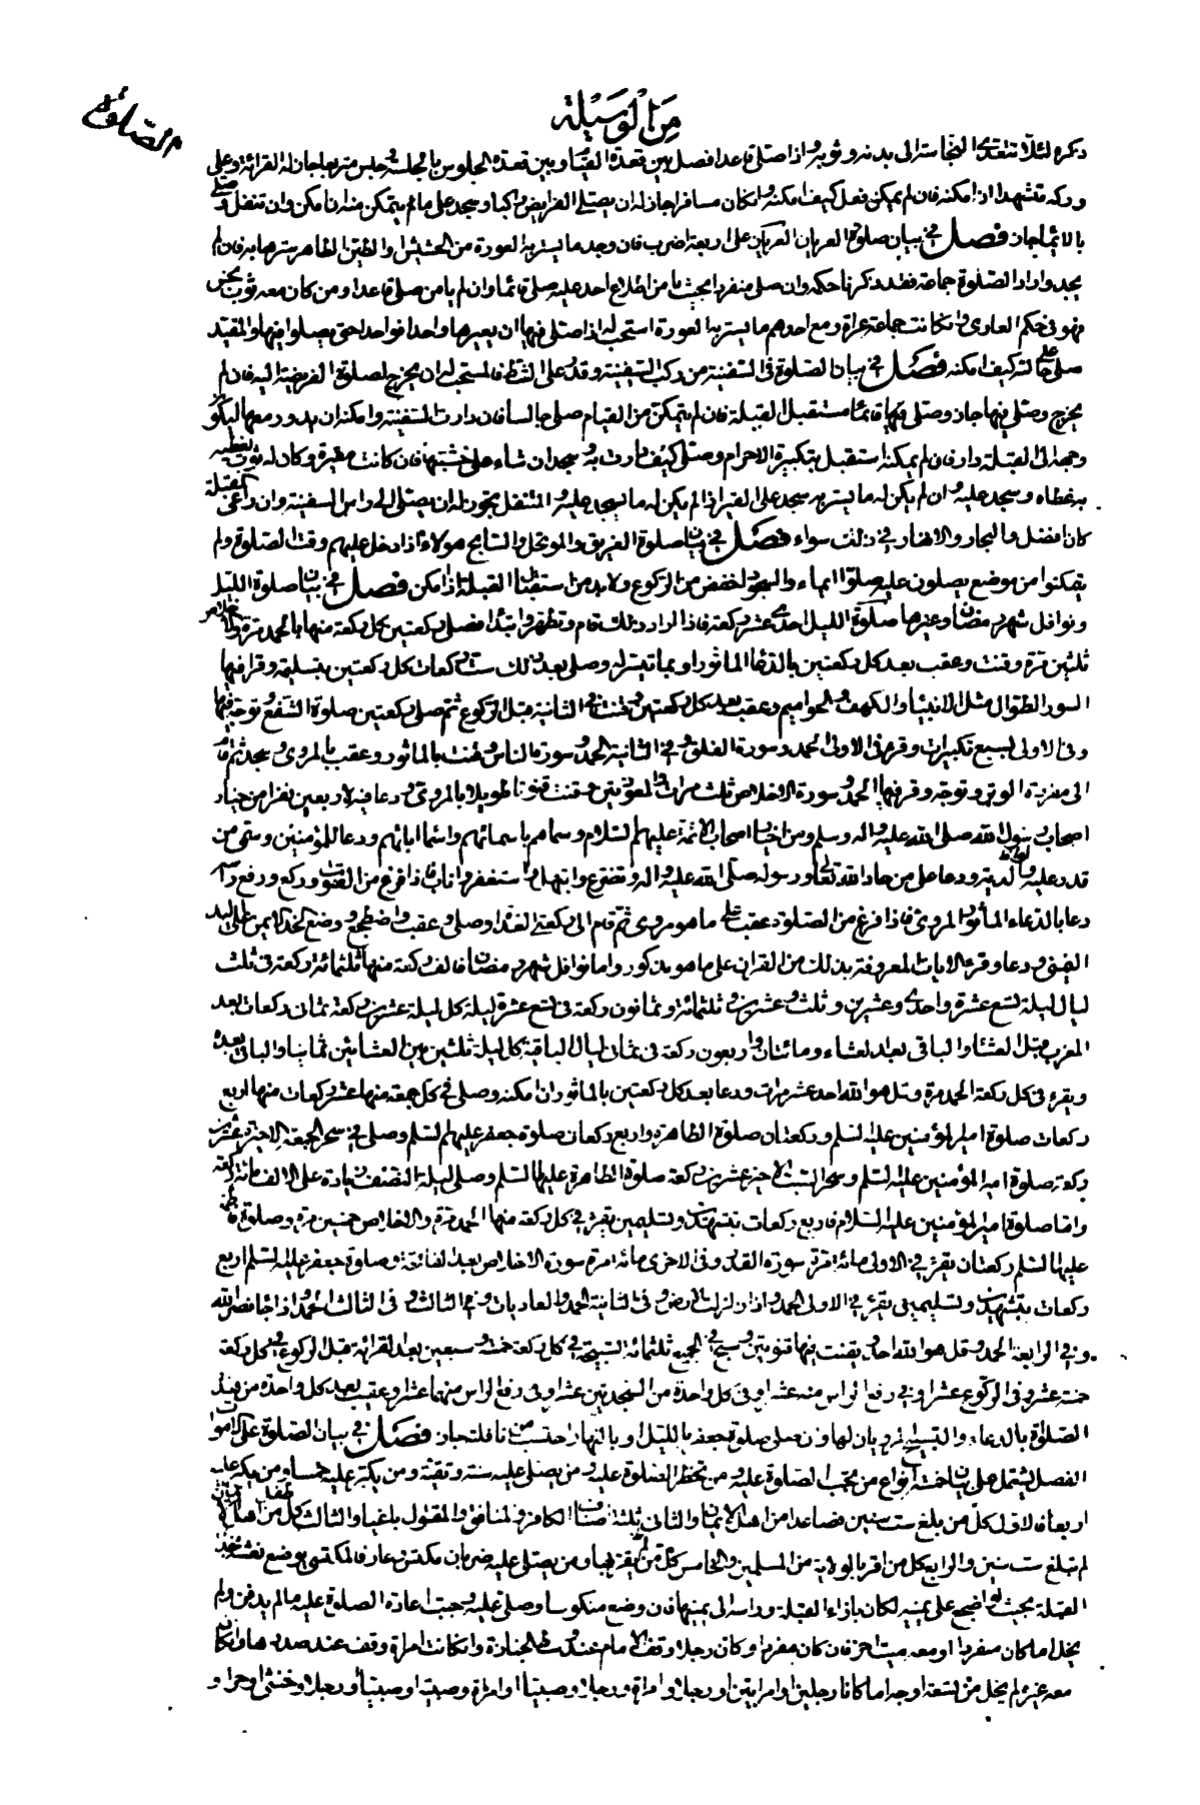 من الوسيلة
الصلوة
ذكره لئلا تتعدى النجاسة الى بدنه وثوبه واذا صلى قاعدا فصل بين قعدة القيام وبين قعدة الجلوس بالجلسة وجلس متربعا جاز له القراءة وعلى
وركه متشهدا اذا امكنه فان لم يمكن فعل كيف امكنه وان كان مسافرا جاز له ان يصلى الفريضة راكبا وسجد على ما تمكن منه ان امكن وان تنفل وصلى
بالايماء جاز فصل في بيان صلوة العريان العريان على اربعة اضرب فان وجد ما يستر به العورة من الحشيش او الطين الطاهر سترها به فان لم
يجد واراد الصلوة جماعة فقد ذكرنا حكمه وان صلى منفردا بحيث يامن اطلاع احد عليه صلى قائما وان لم يامن صلى قاعدا ومن كان معه ثوب نجس
فهو في حكم العارى وان كانت جماعة عراة ومع احدهم ما يستر به العورة استحب له اذا صلى فيها ان يعيرها واحدا فواحدا حتى يصلوا فيها والمقيد
صلى على حالته كيف امكنه فصل في بيان الصلوة في السفينة من ركب السفينة وقدر على الشط فالمستحب له ان يخرج لصلوة الفريضة اليه فان لم
يخرج وصلى فيها جاز وصلى فيها قائما مستقبل القبلة فان لم يتمكن من القيام صلى جالسا فان دارت السفينة وامكنه ان يدور معها ليكون
وجهه الى القبلة دار فان لم يمكنه استقبل بتكبيرة الاحرام وصلى كيف دارت به وسجد ان شاء على خشبتها فان كانت مقيرة وكان له ثوب يغطيه
به غطاه وسجد عليه وان لم يكن له ما يستر به سجد على القير اذا لم يكن له ما يسجد عليه والمتنفل يجوز له ان يصلى الى راس السفينة وان راعى القبلة
كان افضل والبحار والانهار في ذلك سواء فصل في بيان صلوة الغريق والموتحل والسابح هولاء اذا دخل عليهم وقت الصلوة ولم
يتمكنوا من موضع يصلون عليه صلوا ايماء والسجود اخفض من الركوع ولا بد من استقبال القبلة اذا امكن فصل في بيان صلوة الليل
ونوافل شهر رمضان وغيرها صلوة الليل احدى عشرة ركعة فاذا اراد ذلك قام وتطهر وابتدا فصلى ركعتين بكل ركعة منها بالحمد مرة والاخلاص
ثلثين مرة وقنت وعقب بعد كل ركعتين بالدعاء الماثور او بما تيسر له وصلى بعد ذلك ست ركعات كل ركعتين بتسليمة وقرا فيها
السور الطوال مثل الانبياء والكهف والحواميم وعقب بعد كل ركعتين وقنت في الثانية قبل الركوع ثم صلى ركعتين صلوة الشفع توجه فيها
وفى الاولى بسبع تكبيرات وقرء فى الاولى الحمد وسورة الفلق وفي الثانية الحمد وسورة الناس وقنت بالماثور وعقب بالمروى وسجد ثم قام
الى مفردة الوتر وتوجه وقرء فيها الحمد وسورة الاخلاص ثلث مرات والمعوذتين وقنت قنوتا طويلا بالمروى ودعا فيه لاربعين نفرا من خيار
اصحاب رسول الله صلى الله عليه واله وسلم ومن اخيار اصحاب الائمة عليهم السلام وسماهم باسمائهم واسماء ابائهم ودعا للمؤمنين وسمى من
قدر عليه ولوالديه ودعا على من حاد الله تعالى ورسوله صلى الله عليه واله وتضرع وابتهل واستغفر واناب فاذا فرغ من القنوت وركع ورفع راسه
دعا بالدعاء الماثور المروى فاذا فرغ من الصلوة عقب على ما هو مروى ثم قام الى ركعتى الغداة وصلى وعقب واضطجع ووضع خده الايمن على اليد
اليمنى ودعا وقرء الايات المعروفة بذلك من القران على ما هو مذكور واما نوافل شهر رمضان فالف ركعة منها ثلثمائة ركعة فى ثلث
ليال ليلة تسع عشرة واحدى وعشرين وثلث وعشرين وثلثمائة وثمانون ركعة فى تسع عشرة ليلة كل ليلة عشرين ركعة ثمان ركعات بعد
المغرب قبل العشاء والباقى بعد العشاء ومائتان واربعون ركعة فى ثمان ليال الباقية كل ليلة ثلثين بين العشائين ثمانيا والباقى بعده
ويقرء فى كل ركعة الحمد مرة وقل هو الله احد عشر مرات ودعا بعد كل ركعتين بالماثور ان امكنه وصلى في كل جمعة منها عشر ركعات منها اربع
ركعات صلوة امير المؤمنين عليه السلم وركعتان صلوة الطاهرة واربع ركعات صلوة جعفر عليهم السلم وصلى في سحر الجمعة الاخيرة عشرين
ركعة صلوة امير المؤمنين عليه السلم وسحر السبت الاخير عشرين ركعة صلوة الطاهرة عليها السلم وصلى ليلة النصف زيادة على الالف مائة ركعة
واما صلوة امير المؤمنين عليه السلام فاربع ركعات بتشهدين وتسليمين يقرء في كل ركعة منها الحمد مرة والاخلاص خمسين مرة وصلوة فاطمة
عليها السلم ركعتان يقرء في الاولى مائة مرة سورة القدر وفى الاخرى مائة مرة سورة الاخلاص بعد الفاتحة وصلوة جعفر عليه السلم اربع
ركعات بتشهدين وتسليمين يقرء في الاولى الحمد واذا زلزلت الارض وفى الثانية الحمد والعاديات وفي الثالث وفى الثالث الحمد واذا جاء نصر الله
وفي الرابعة الحمد وقل هو الله احد ويقنت فيها قنوتين وسبح في الجميع ثلثمائة تسبيحة في كل ركعة خمسة وسبعين بعد القراءة قبل الركوع في كل ركعة
خمسة عشر وفى الركوع عشرا وفي رفع الراس منه عشرا وفى كل واحدة من السجدتين عشرا وفى رفع الراس منهما عشرا وعقيب بعد كل واحدة من هذه
الصلوة بالدعاء والتسبيح المرويان لها ومن صلى صلوة جعفر بالليل او بالنهار احتسب من نافلته جاز فصل في بيان الصلوة على الاموات
الفصل يشتمل على بيان خمسة انواع من تجب الصلوة عليه ومن تحظر الصلوة عليه ومن يصلى عليه سنة وتقية ومن يكبر عليه خمسا ومن يكبر عليه
اربعا فالاول كل من بلغ ست سنين فصاعدا من اهل الايمان والثانى ثلثة اصناف الكافر والمنافق والمقتول باغيا والثالث كل من اطفال اهل الايمان
لم تبلغ ست سنين والرابع كل من اقر بالولاية من المسلمين والخامس كل من لم يقر بها ومن يصلى عليه ضربان مكتس وعار فالمكتسى يوضع نعشه تجاه
القبلة بحيث لو اضجع على يمينه لكان بازاء القبلة وراسه الى يمينها فان وضع منكوسا وصلى عليه وجبت اعادة الصلوة عليه ما لم يدفن ولم
يخل اما كان منفردا او معه ميت اخر فان كان منفردا وكان رجلا وقف الامام عند وسط الجنازة وان كانت امراة وقف عند صدرها وان كان
معه غيره لم يخل من تسعة اوجه اما كانا رجلين او امراتين او رجلا وامراة ورجلا وصبيا او امراة وصبية او صبيا او رجلا وخنثى او حرا و